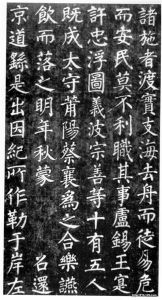 諸施者渡實支海去舟而徒易危
而安民莫不利職其事盧錫王寔
許忠浮圖義波宗善等十有五人
既成太守莆陽蔡襄為之合樂讌
飲而落之明年秋蒙 召還
京道繇是出因紀所作勒于岸左